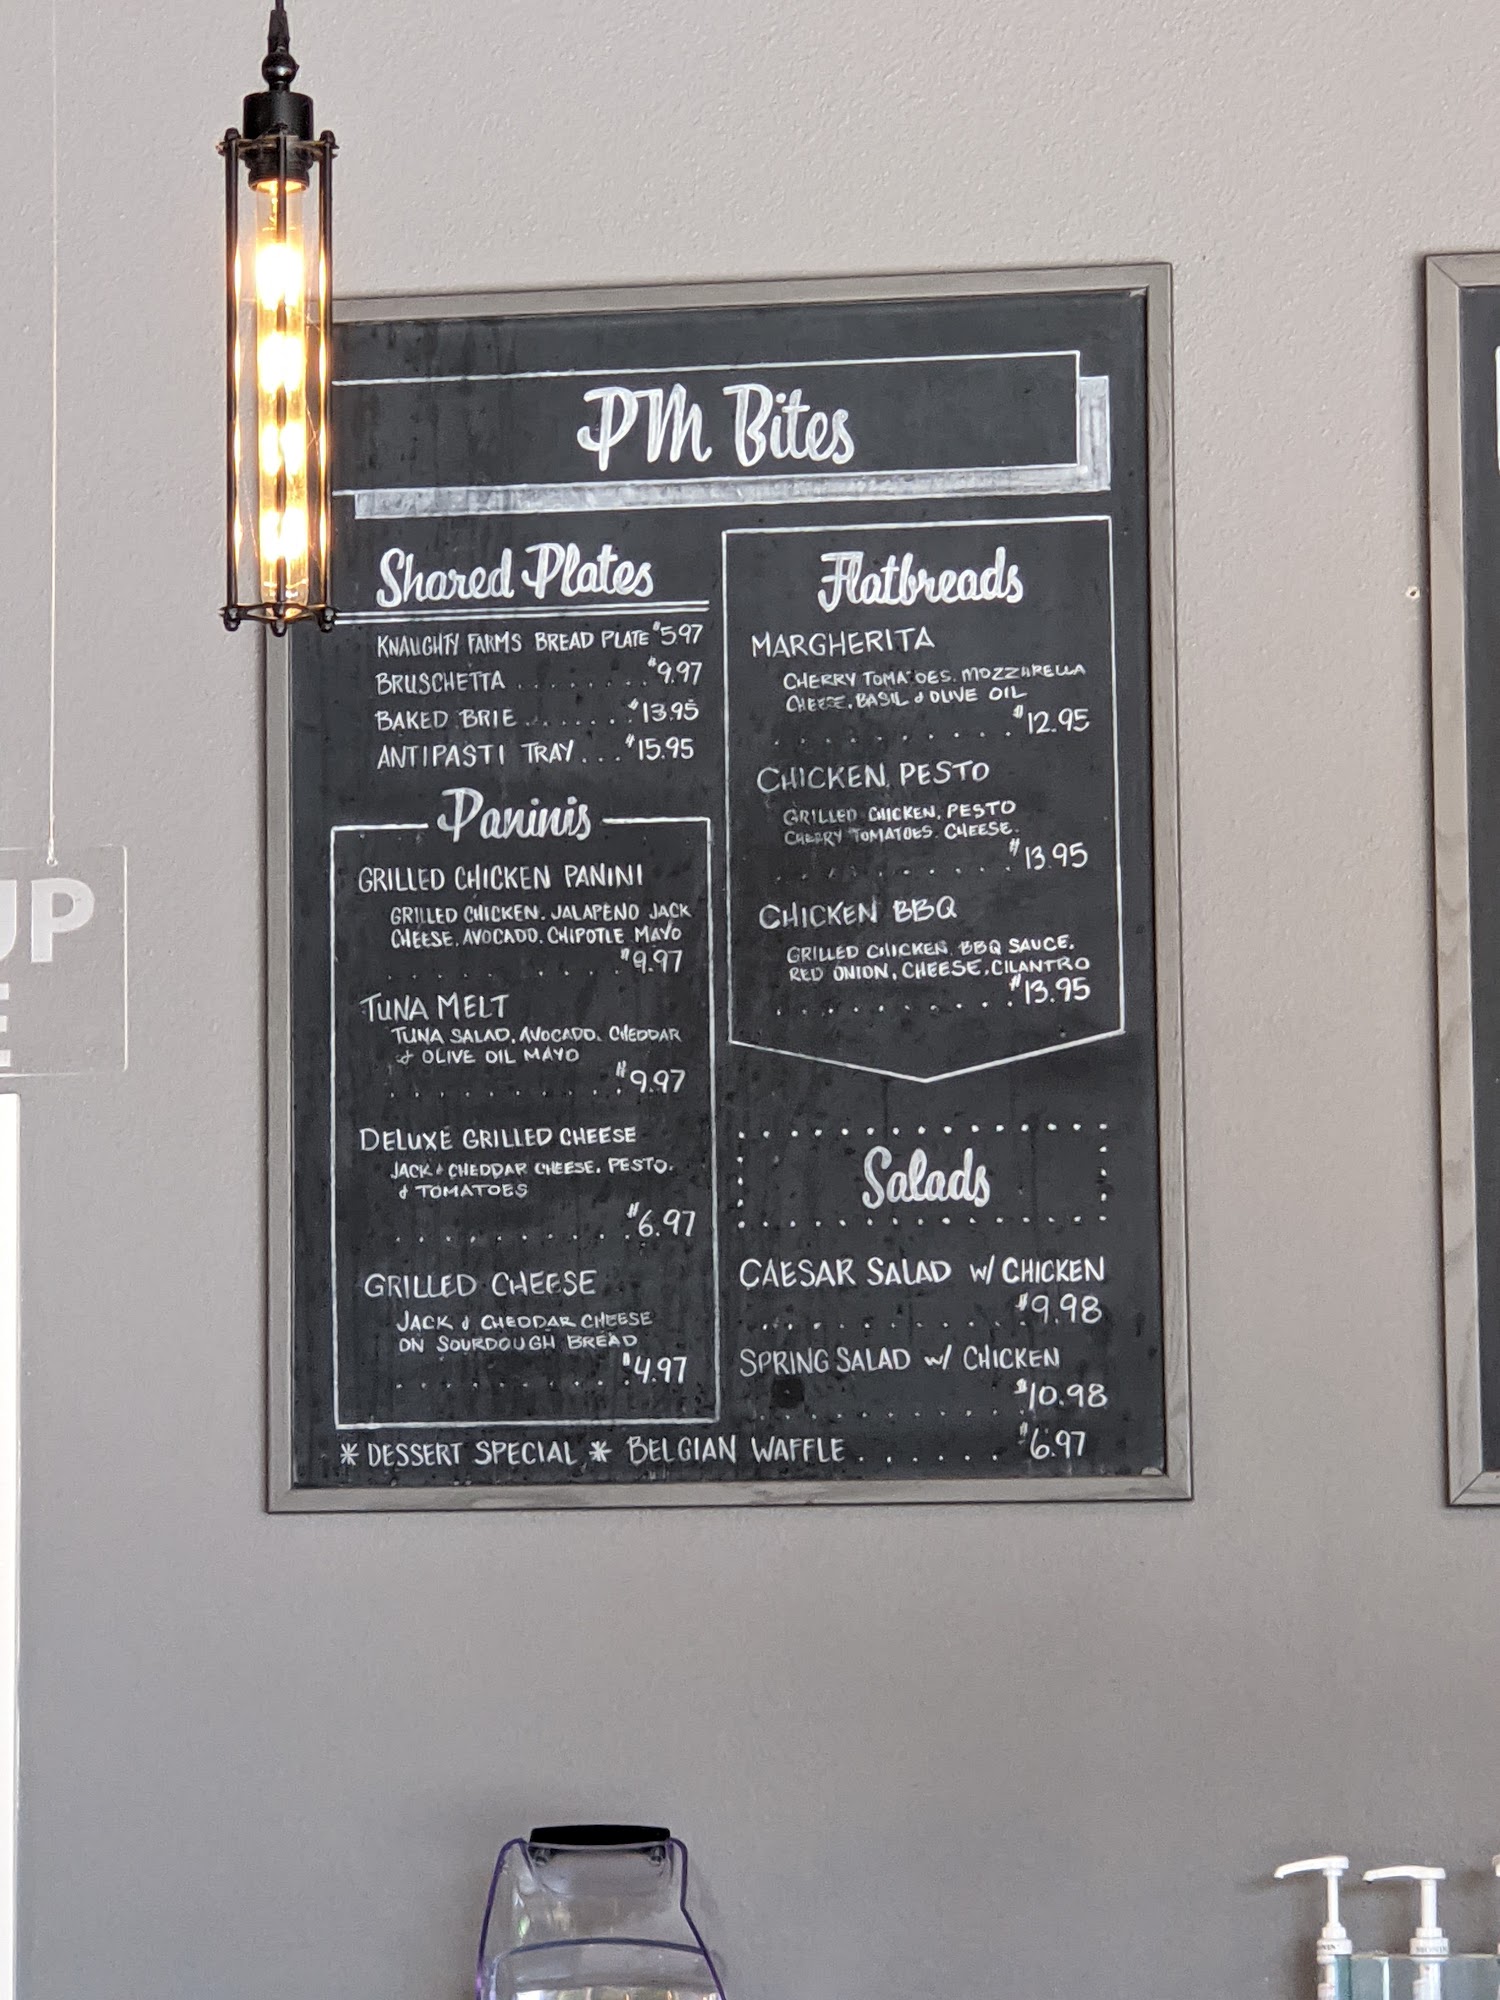 PM Bites
Shared Plates
KNAUGHTY FARMS BREAD PLATE $5.97
BRUSCHETTA ........ $9.97
BAKED BRIE ....... $13.95
ANTIPASTI TRAY ... $15.95
Paninis
GRILLED CHICKEN PANINI
GRILLED CHICKEN, JALAPENO JACK
CHEESE, AVOCADO, CHIPOTLE MAYO
.......... $9.97
TUNA MELT
TUNA SALAD, AVOCADO, CHEDDAR
& OLIVE OIL MAYO
.......... $9.97
DELUXE GRILLED CHEESE
JACK & CHEDDAR CHEESE, PESTO,
& TOMATOES
.......... $6.97
GRILLED CHEESE
JACK & CHEDDAR CHEESE
ON SOURDOUGH BREAD
.......... $4.97
Flatbreads
MARGHERITA
CHERRY TOMATOES, MOZZARELLA
CHEESE, BASIL & OLIVE OIL
.......... $12.95
CHICKEN PESTO
GRILLED CHICKEN, PESTO
CHERRY TOMATOES, CHEESE.
.......... $13.95
CHICKEN BBQ
GRILLED CHICKEN, BBQ SAUCE,
RED ONION, CHEESE, CILANTRO
.......... $13.95
Salads
CAESAR SALAD w/ CHICKEN
.......... $9.98
SPRING SALAD w/ CHICKEN
.......... $10.98
* DESSERT SPECIAL * BELGIAN WAFFLE ...... $6.97
UP